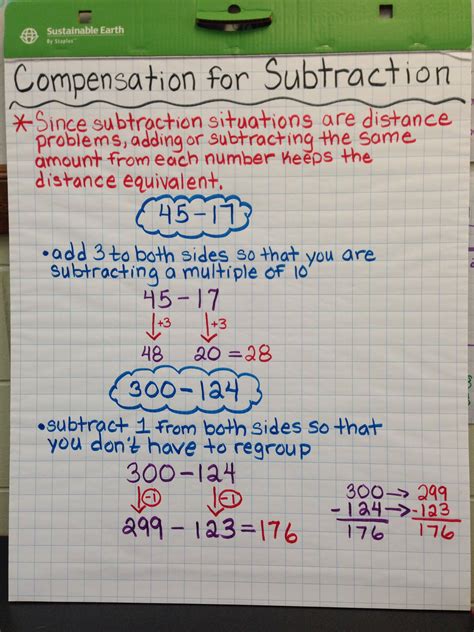 Sustainable Earth
By Staples
Compensation for Subtraction
*Since subtraction situations are distance
problems, adding or subtracting the same
amount from each number keeps the
distance equivalent.
45-17
•add 3 to both sides so that you are
subtracting a multiple of 10
45-17
↓+3 ↓+3
48 20=28
300-124
•subtract 1 from both sides so that
you don't have to regroup
300-124
↓-1 ↓-1
299-123=176
300→299
-124→-123
176 176